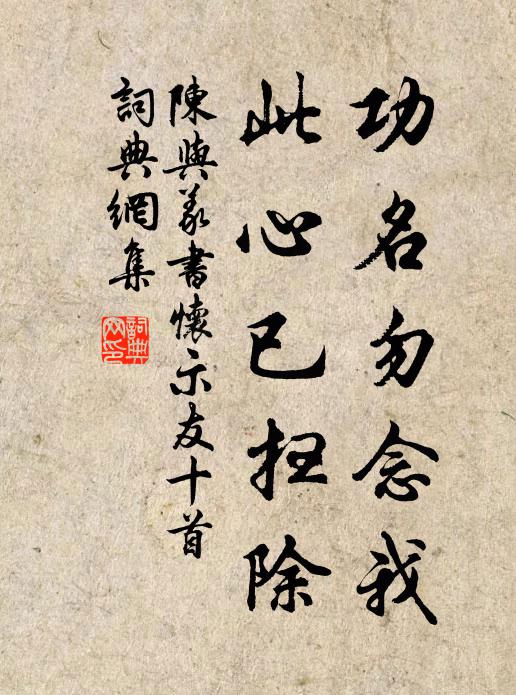 功名勿念我
此心已掃除
陳與義書懷示友十首
詞典網集
詞典
网印